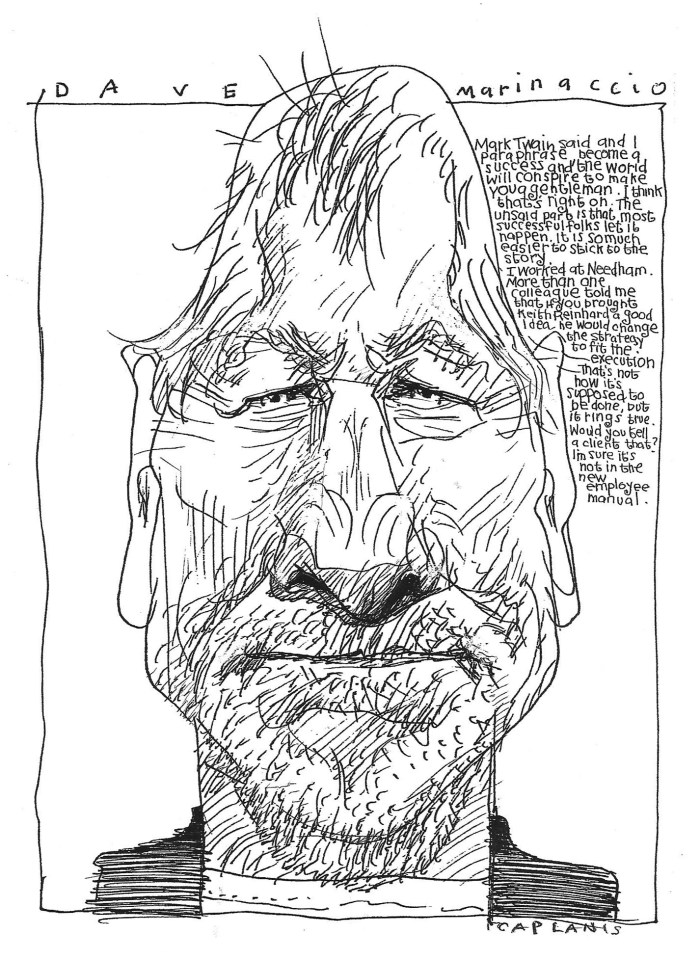 DAVE marinaccio
Mark Twain said and I
paraphrase become a
success and the world
will conspire to make
you a gentleman. I think
that's right on. The
unsaid part is that most
successful folks let it
happen. It is so much
easier to stick to the
story.
I worked at Needham.
More than one
colleague told me
that if you brought
Keith Reinhard a good
idea he would change
the strategy
to fit the
execution
That's not
how it's
supposed to
be done, but
it rings true.
Would you tell
a client that?
I'm sure it's
not in the
new
employee
manual.
CAPLANIS